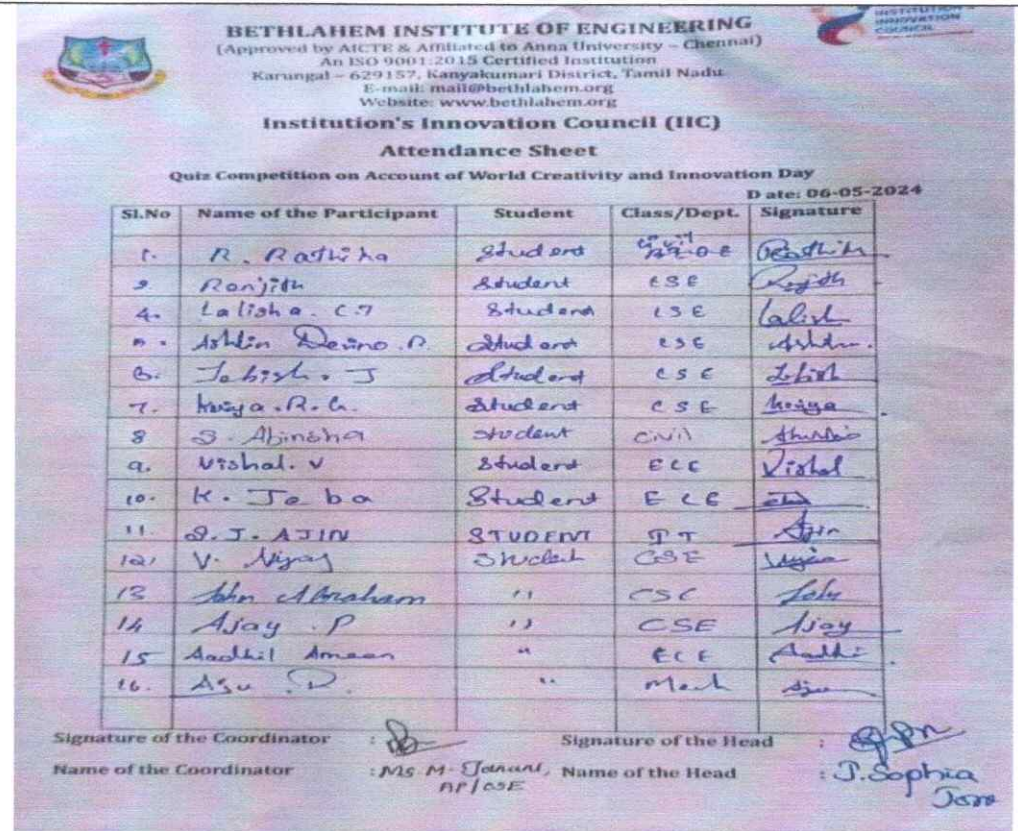 INSTITUTION'S
INNOVATION
COUNCIL
BETHLAHEM INSTITUTE OF ENGINEERING
(Approved by AICTE & Affiliated to Anna University – Chennai)
An ISO 9001:2015 Certified Institution
Karungal – 629157, Kanyakumari District, Tamil Nadu
E-mail: mail@bethlahem.org
Website: www.bethlahem.org
Institution's Innovation Council (IIC)
Attendance Sheet
Quiz Competition on Account of World Creativity and Innovation Day
Date: 06-05-2024
Sl.No Name of the Participant Student Class/Dept. Signature
1. R. Rathika Student
2 Ranjith Student CSE
4. Lalisha. C.J Student CSE Lalish
5. Ashlin Student CSE
6. Jebish. J Student CSE Jebish
7. R. Student CSE
8 S. Abinsha student Civil
9. Vishal. V Student ECE Vishal
10. K. Jeba Student ECE
11 S. J. AJIN STUDENT Ajin
12. V. Student CSE
13 John Abraham " CSE John
14 Ajay . P " CSE Ajay
15 Aadhil Ameen " ECE Aadhil
16. " Mech
Signature of the Coordinator : Signature of the Head :
Name of the Coordinator : Ms. M. Name of the Head : J. Sophia
AP/CSE